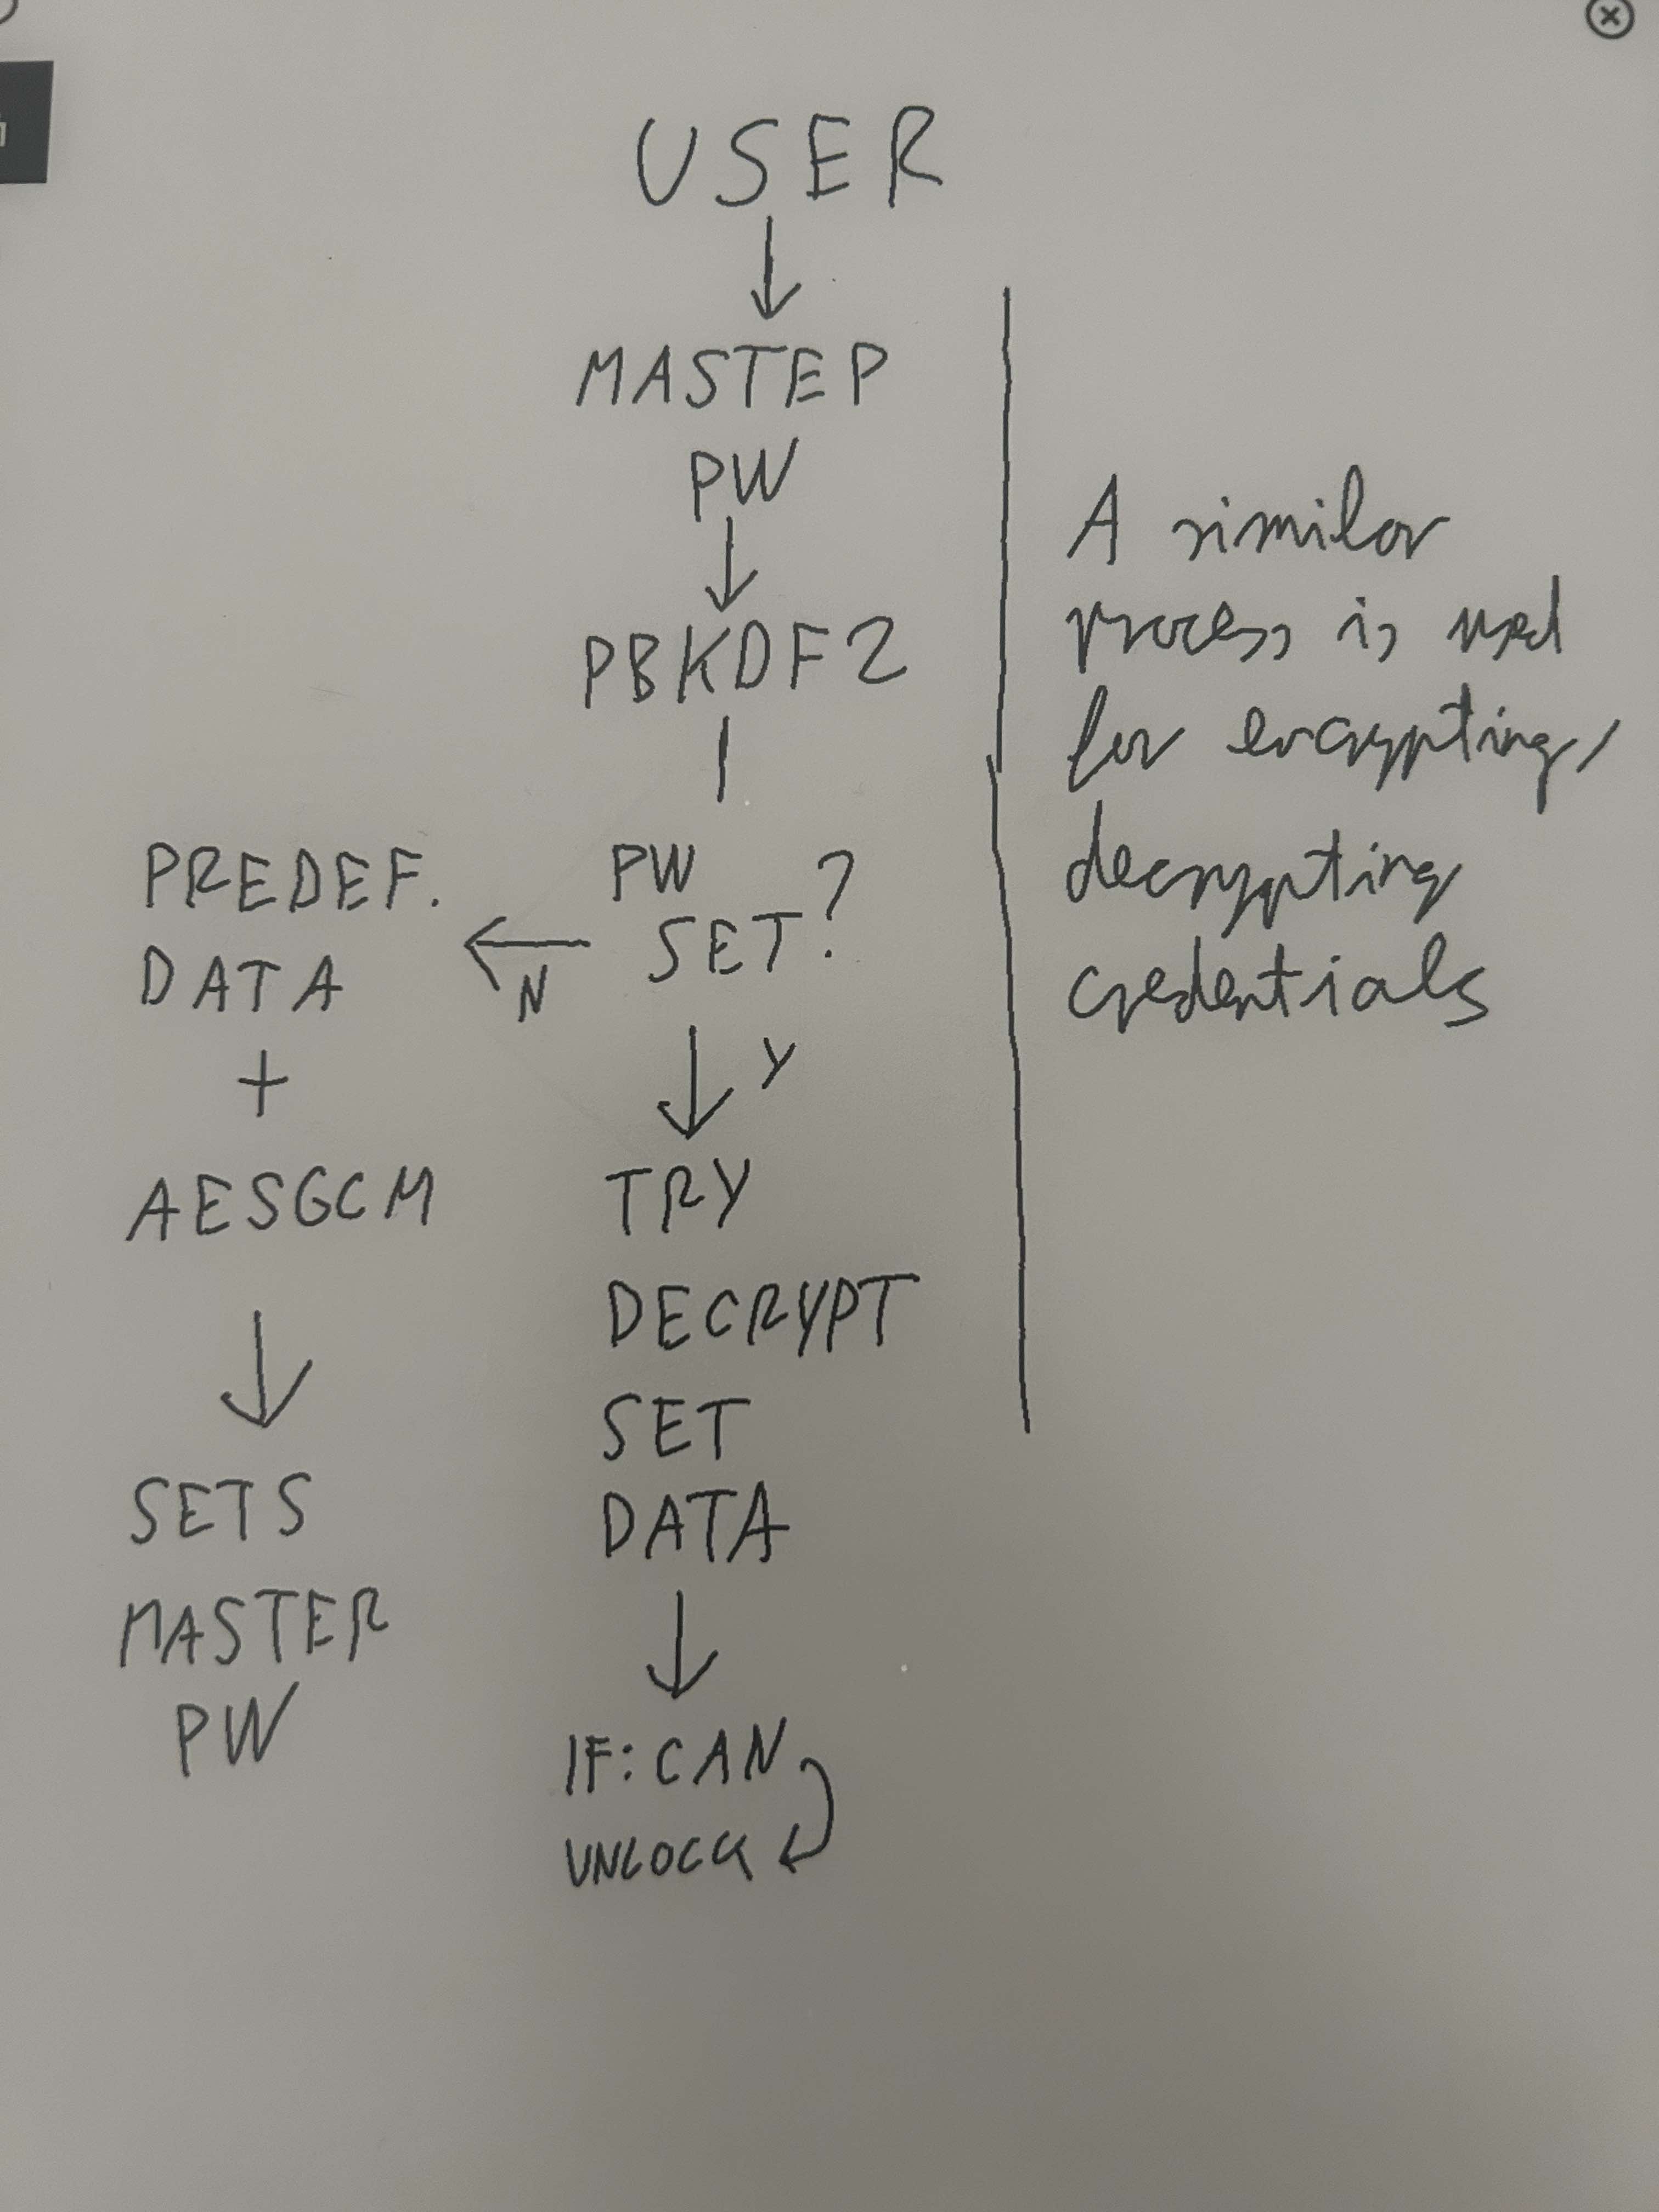 USER
MASTEP
PW
PBKDF2
PW
SET?
N
Y
PREDEF.
DATA
+
AESGCM
SETS
MASTER
PW
TRY
DECRYPT
SET
DATA
IF: CAN
UNLOCK
A similar
process is used
for encrypting,
decrypting
credentials